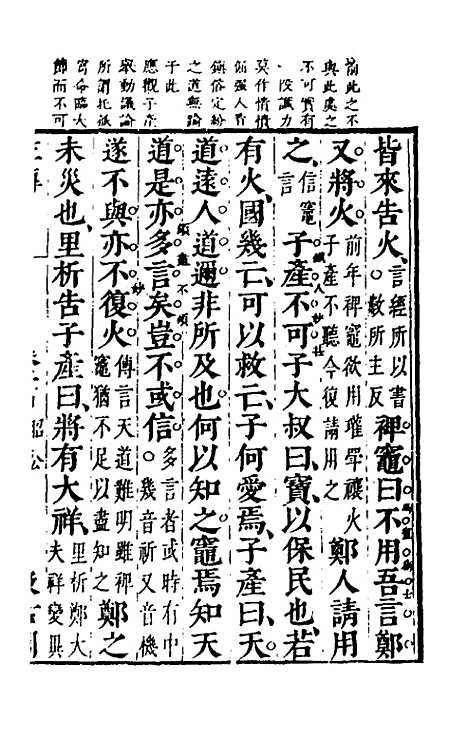 前此之不
與此處之
不可實有
一段識力
莫作憒憒
倔強人看
鎮俗定紛
之道無踰
于此
應觀子產
舉動議論
所謂托孤
寄命臨大
節而不可
皆來告火。言經所以書數所主反裨竈曰不用吾言鄭
又將火前年裨竈欲用瓘斝禳火子產不聽今復請用之鄭人請用
之信竈言子產不可子大叔曰寶以保民也若
有火國幾亡可以救亡子何愛焉子產曰天
道遠人道邇非所及也何以知之竈焉知天
道是亦多言矣豈不或信多言者或時有中。幾音祈又音機
遂不與亦不復火傳言天道難明雖裨竈猶不足以盡知之鄭之
未災也里析告子產曰將有大祥里析鄭大夫祥變異